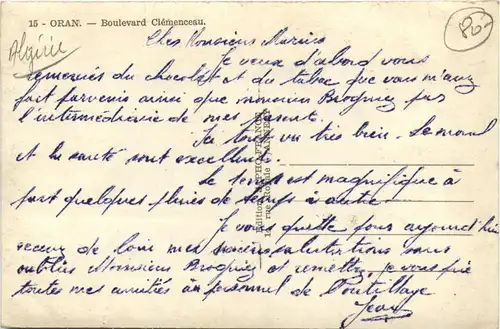 15 - ORAN. — Boulevard Clémenceau.
Algérie
Cher Monsieur
Je veux d'abord vous
remerciés du chocolat et du tabac que vous m'avez
fait parvenir ainsi que monsieur par
l'intermédiaire de mes parents.
Ici tout va très bien. Le moral
et la santé sont excellents.
Le temps est magnifique à
part quelques pluies de temps à autre
Je vous quitte pour aujourd'hui
recevez de loin mes salutations sans
oubliés Monsieur et remettez, je vous prie
toutes mes amitiés au personnel de l'outillage
Jean
Edition